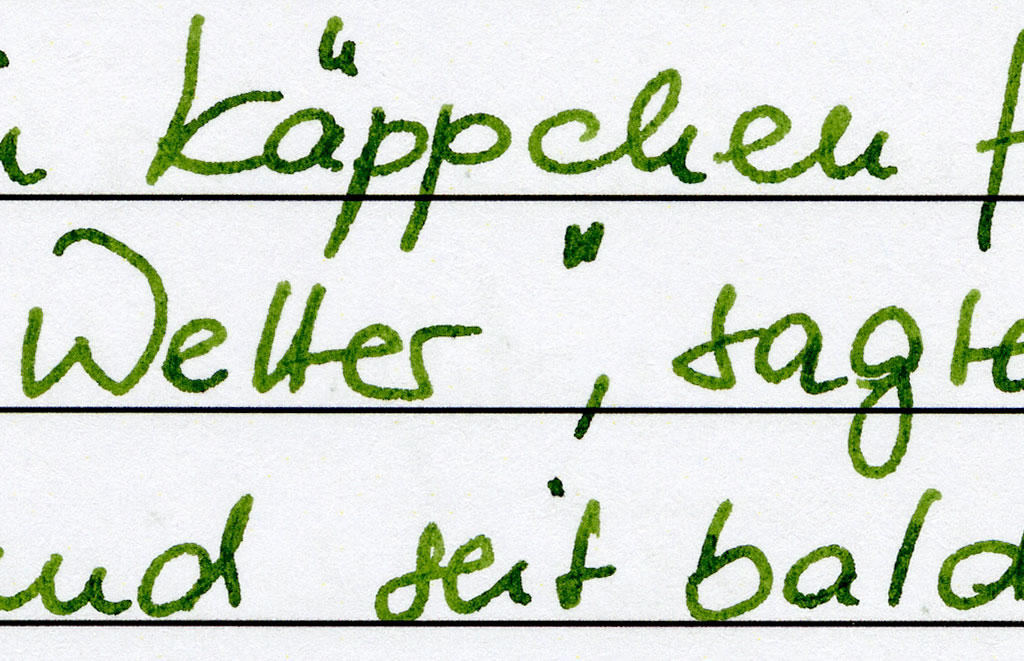 Käppchen
Wetter", sagte
und seit bald